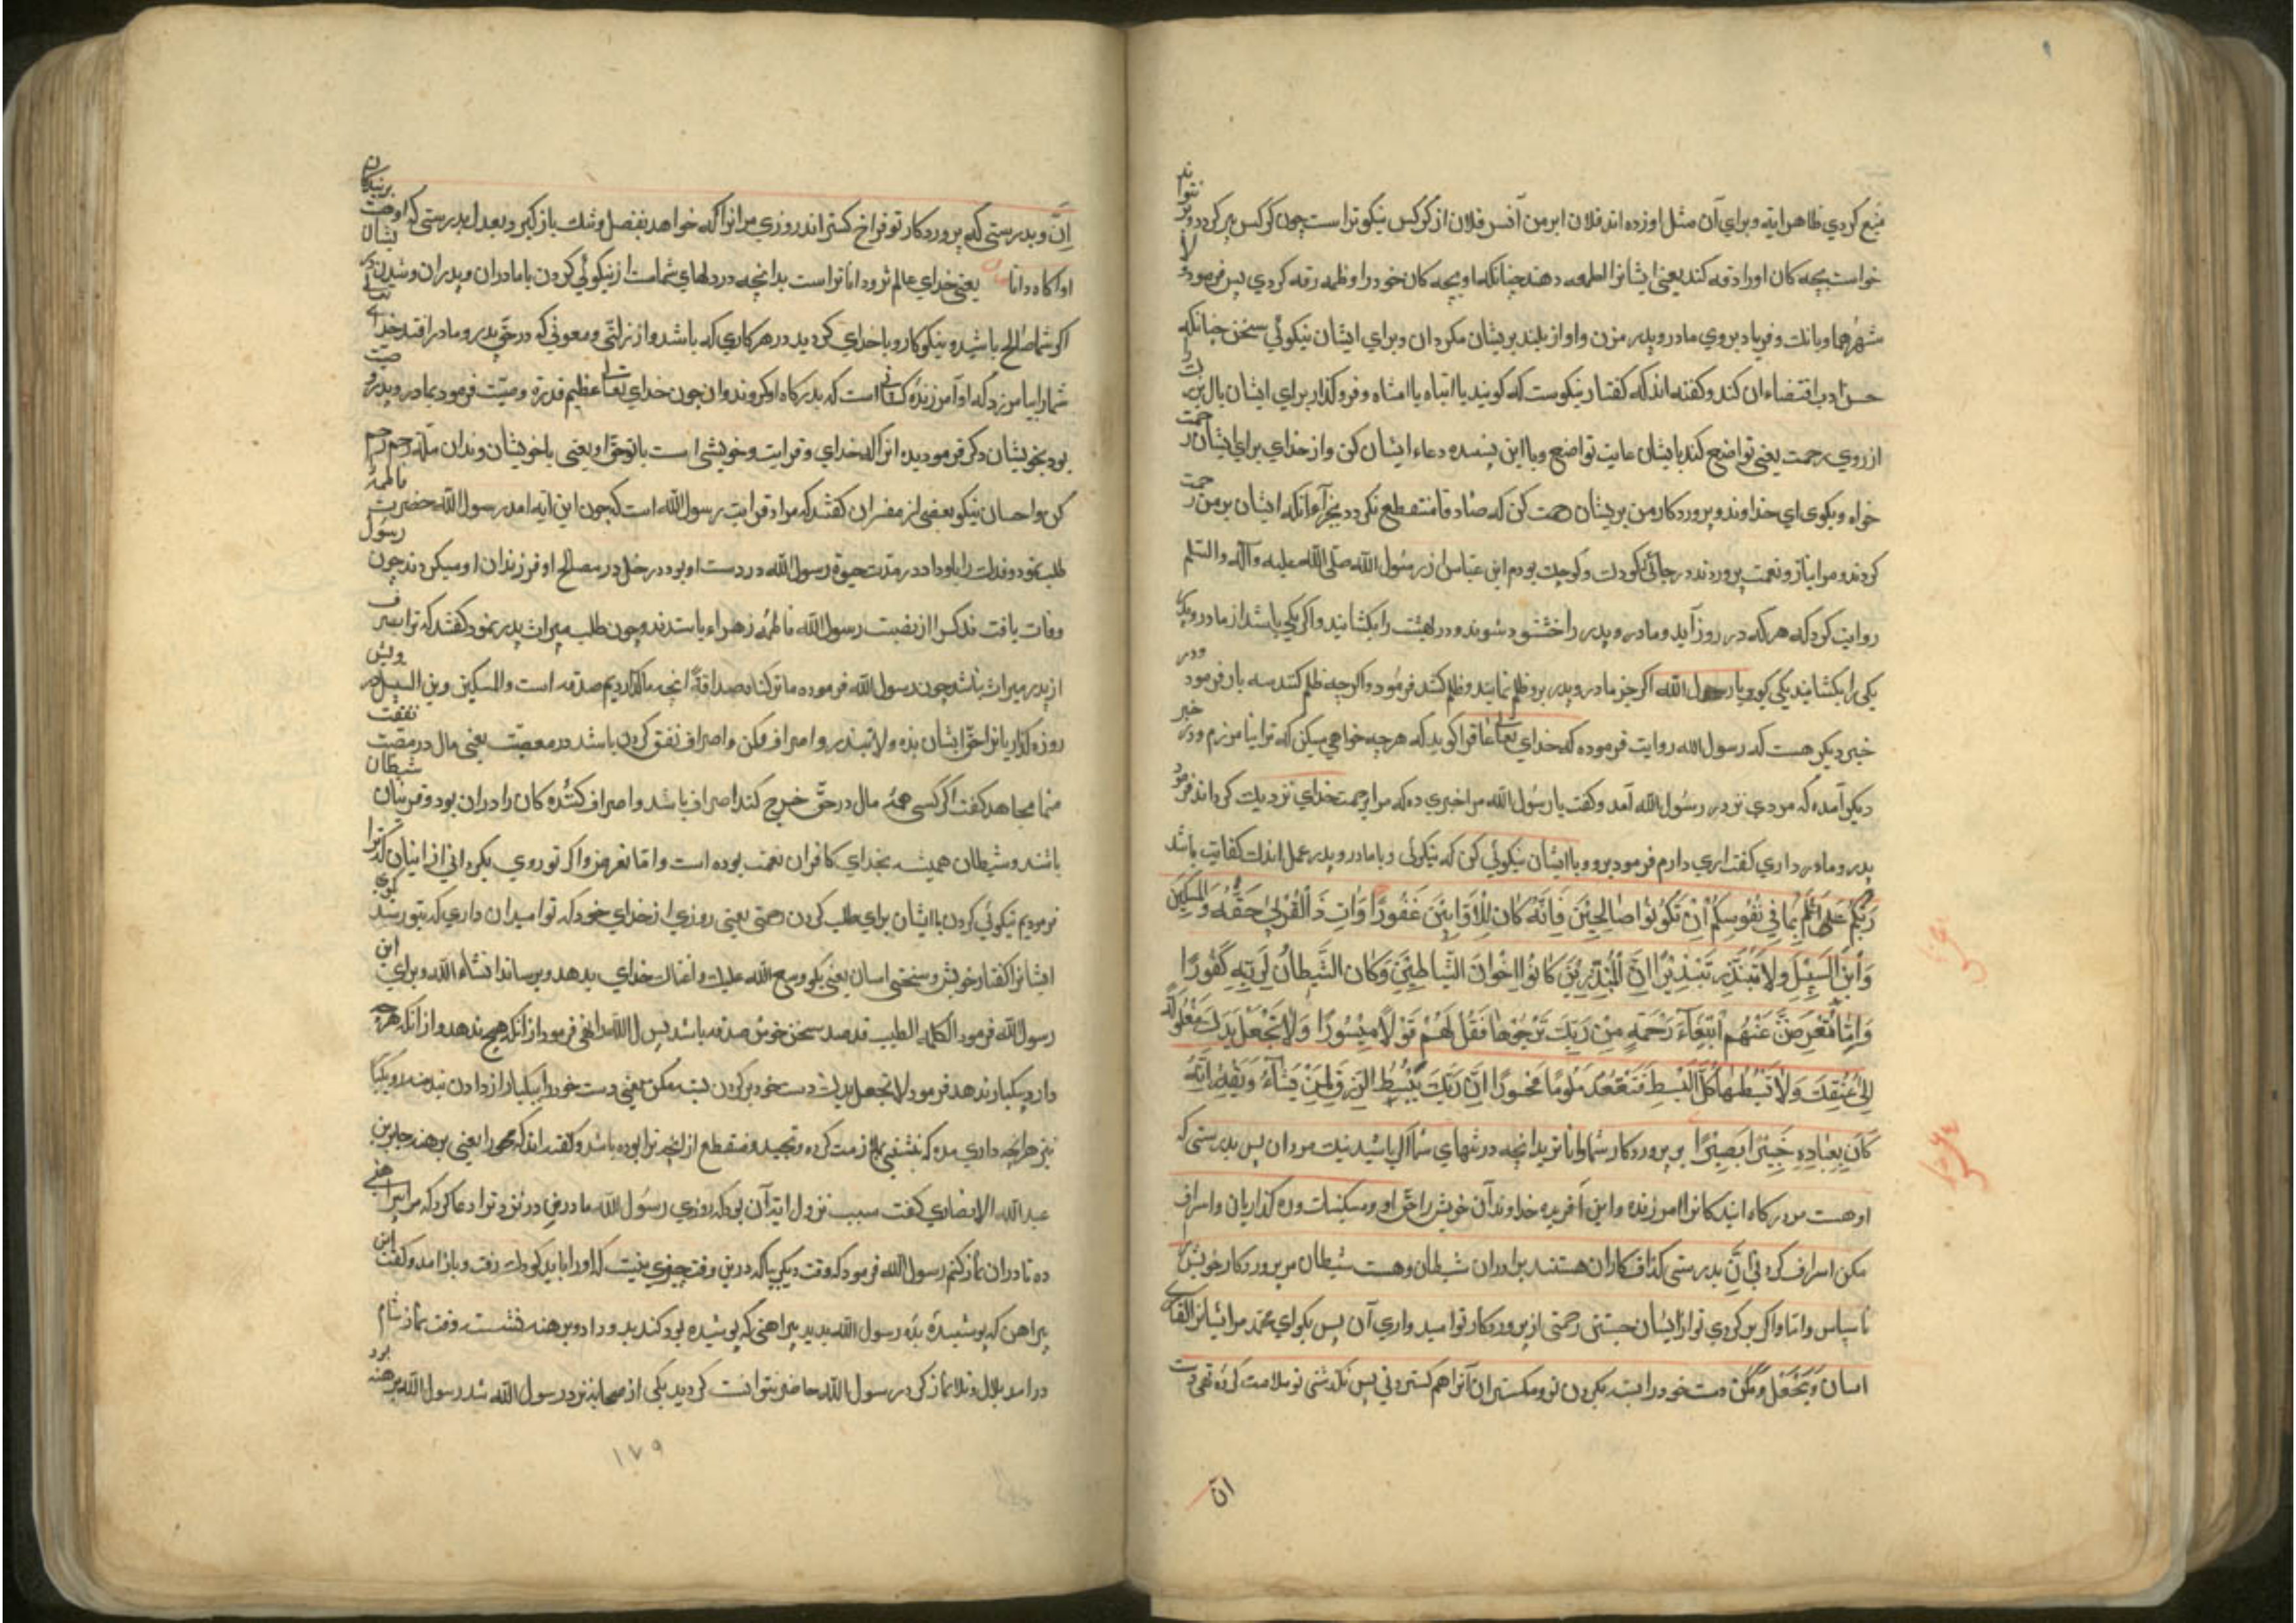 منبع کردی ظاهرا یه و برای آن مثل او زده اند فلان ابر من آنس فلان از کرکس نیکوتر است چون کرکس پیر کردد و نتواند
خواست بچه کان اورا دقه کند یعنی ایشانرا طعمه دهند چنانکه او بچه کان خود را وظمه رقه کردی پس فرمود لا
شهرهما و بانک و فریاد بروی مادر و پدر مزن و اواز بلند بریشان مکردان و برای ایشان نیکوئی سخن چنانکه
حسن ادب اقتضاء ان کند و کفته اند که کفتار نیکوست که کویند یا ابتاه یا امتاه و فرو کذار برای ایشان بال
از روی رحمت یعنی تواضع کند بایشان غایت تواضع و با این پسنده دعاء ایشان کن و از خدای برای ایشان رحمت
خواه و بکوی ای خداوند و پروردکار من بریشان رحمت کن که منقطع نکردد بجزآء آنکه ایشان بر من رحمت
کردند و مرا بناز و نعمت پروردند در حالتی کودک و کوچک بودم ابن عباس از رسول الله صلی الله علیه وآله والسلم
روایت کرد که هر که در روز آید و مادر و پدر را خشنود شوند دو در بهشت را بکشایند و اکر یکی باشد از مادر و پدر
یکی را بکشایند یکی کوید یا رسول الله اکر چه مادر و پدر برو ظلم نمایند و ظلم کنند فرمود و اکر چه ظلم کنند سه بار فرمود و در
خبری دیکر هست که رسول الله روایت فرموده که خدای تعالی عاق را کوید که هر چه خواهی میکن که ترا نیامرزم و در خبر
دیکر آمده که مردی نزد رسول الله آمد و کفت یا رسول الله مرا خبری ده که مرا برحمت خدای نزدیک کرداند فرمود
پدر و مادر داری کفت اری دارم فرمود برو و با ایشان نیکوئی کن که نیکوئی و با مادر و پدر عمل اندک کفایت باشد
رَبُّكُمْ اَعْلَمُ بِمَا فِي نُفُوسِكُمْ اِنْ تَكُونُوا صَالِحِيْنَ فَاِنَّهُ كَانَ لِلْاَوَّابِيْنَ غَفُوْرًا وَاٰتِ ذَا الْقُرْبٰى حَقَّهُ وَالْمِسْكِيْنَ
وَابْنَ السَّبِيْلِ وَلَا تُبَذِّرْ تَبْذِيْرًا اِنَّ الْمُبَذِّرِيْنَ كَانُوا اِخْوَانَ الشَّيَاطِيْنَ وَكَانَ الشَّيْطَانُ لِرَبِّهِ كَفُوْرًا
وَاِمَّا تُعْرِضَنَّ عَنْهُمُ ابْتِغَآءَ رَحْمَةٍ مِنْ رَبِّكَ تَرْجُوْهَا فَقُلْ لَهُمْ قَوْلًا مَيْسُوْرًا وَلَا تَجْعَلْ يَدَكَ مَغْلُوْلَةً
اِلٰى عُنُقِكَ وَلَا تَبْسُطْهَا كُلَّ الْبَسْطِ فَتَقْعُدَ مَلُوْمًا مَحْسُوْرًا اِنَّ رَبَّكَ يَبْسُطُ الرِّزْقَ لِمَنْ يَشَآءُ وَيَقْدِرُ اِنَّهُ
كَانَ بِعِبَادِهِ خَبِيْرًا بَصِيْرًا پروردکار شما داناتر بدانچه در تنهای شما اکر باشید نیک مردان پس بدرستی که
او هست مر درکاه ایند کانرا امرزنده و خداوند آن خویش را حق او و مسکینان و ره کذاریان و اسراف
مکن اسراف کردنی اِنَّ بدرستی کذاف کاران هستند برادران شیطان و هست شیطان مر پروردکار خویش را
ناسپاس و اما و اکر بر کردی تو از ایشان جستنی رحمتی از پروردکار تو امید واری آن پس بکو ای محمد مر ایشانرا کفتاری
اسان وَ تَجْعَلْ و مکن دست خود را بسته بکردن تو و مکستران آنرا هم کستردنی پس بکردی تو ملامت کرده تهی دست
ان
اِنَّ و بدرستی که پروردکار تو فراخ کستراند روزی مر انرا که خواهد بفضل و تنک باز کیرد بعدل بدرستی که او هست بر بندکان
او اکاه دانا یعنی خدای عالم تر و داناتر است بدانچه در دلهای شماست از نیکوئی کردن با مادران و پدران و شدن بدیشان
اکر شما صالح باشید و نیکوکار و با خدای کردید در هر کاری که باشد و از زلتی و معونی که در حق پدر و مادر افتد خدای تعالی
شما را بیامرزد که او آمرزنده کسانی است که بدرکاه او کروند و ان چون خدای تعالی عظیم قدرته وصیت فرمود بمادر و پدر و
بود بخویشان دکر فرمود بده انرا که خدای و قرابت و خویشی است با تو حق او یعنی با خویشان وندان صله رحم
کن و احسان نیکو بعضی از مفسران کفتند که مراد قرابت رسول الله است که چون این آیه امد رسول الله حضرت فاطمه
طلب نمود و فدک را باو داد در مدت حیوة رسول الله در دست او بود دخل در مصالح او فرزندان او میکردند چون رسول
وفات یافت فدک را از بضعت رسول الله فاطمه زهراء باستدند و چون طلب میراث پدر نمود کفتند که ترا
از پدر میراث نباشد چون رسول الله فرموده ما ترکناه صداقة انچه ما کذاردیم صدقه است والمسکین وابن السبیل و درویش
روزه کذاریانرا حق ایشان بده ولا تبذر و اسراف مکن و اسراف نفق کردن باشد در معصیت یعنی مال در معصیت نفقت
منما مجاهد کفت اکر کسی همه مال در حق خرج کند اسراف نباشد و اسراف کننده کان برادران بود و قرینان شیطان
باشند و شیطان همیشه بخدای کافران نعمت بوده است و اما تعرضن و اکر تو روی بکردانی از اینان که ترا
فرمودیم نیکوئی کردن با ایشان برای طلب کردن رحمتی یعنی روزی از خدای خود که تو امید ان داری که بتو رسد بکوی
ایشانرا کفتار خوش و سخنی اسان یعنی بکو وسع الله علیک و اغناک خدای بدهد و برساند انشاء الله و برای این
رسول الله فرمود الکلمة الطیبه صدقه سخن خوش صدقه باشد پس الله تعالی نهی فرمود از آنکه هیچ ندهد و از آنکه هر چه
دارد بیکبار ندهد فرمود لا تجعل یدک دست خود بر کردن بسته مکن یعنی دست خود را بیکبار از دادن نبند و بیکبار
نیز هر انچه داری مده که بنشینی ملامت کرده و منقطع از انچه ترا بوده باشد و کفته اند که محسورا یعنی برهنه جابر بن
عبدالله الانصاری کفت سبب نزول ایه آن بود که روزی رسول الله مادر من در نزد ترا دعا کرد که مرا پیراهنی
ده تا در ان نماز کنم رسول الله فرمود که وقت دیکر بیا که درین وقت چیزی نیست که او را باید کودک رفت و باز امد و کفت این
پیراهن که پوشیده بده رسول الله بدید پیراهنی که پوشیده بود کند بدو داد و برهنه نشست وقت نماز شام
درامد بلال و بلا نماز کرد رسول الله حاضر نتوانست کردید یکی از صحابه نزد رسول الله شد رسول الله برهنه بود
۱۷۹